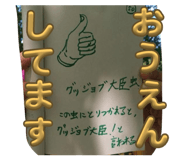 おうえん
してます
グッジョブ大臣虫
この虫にとりつかれると、
グッジョブ大臣!と
言われる